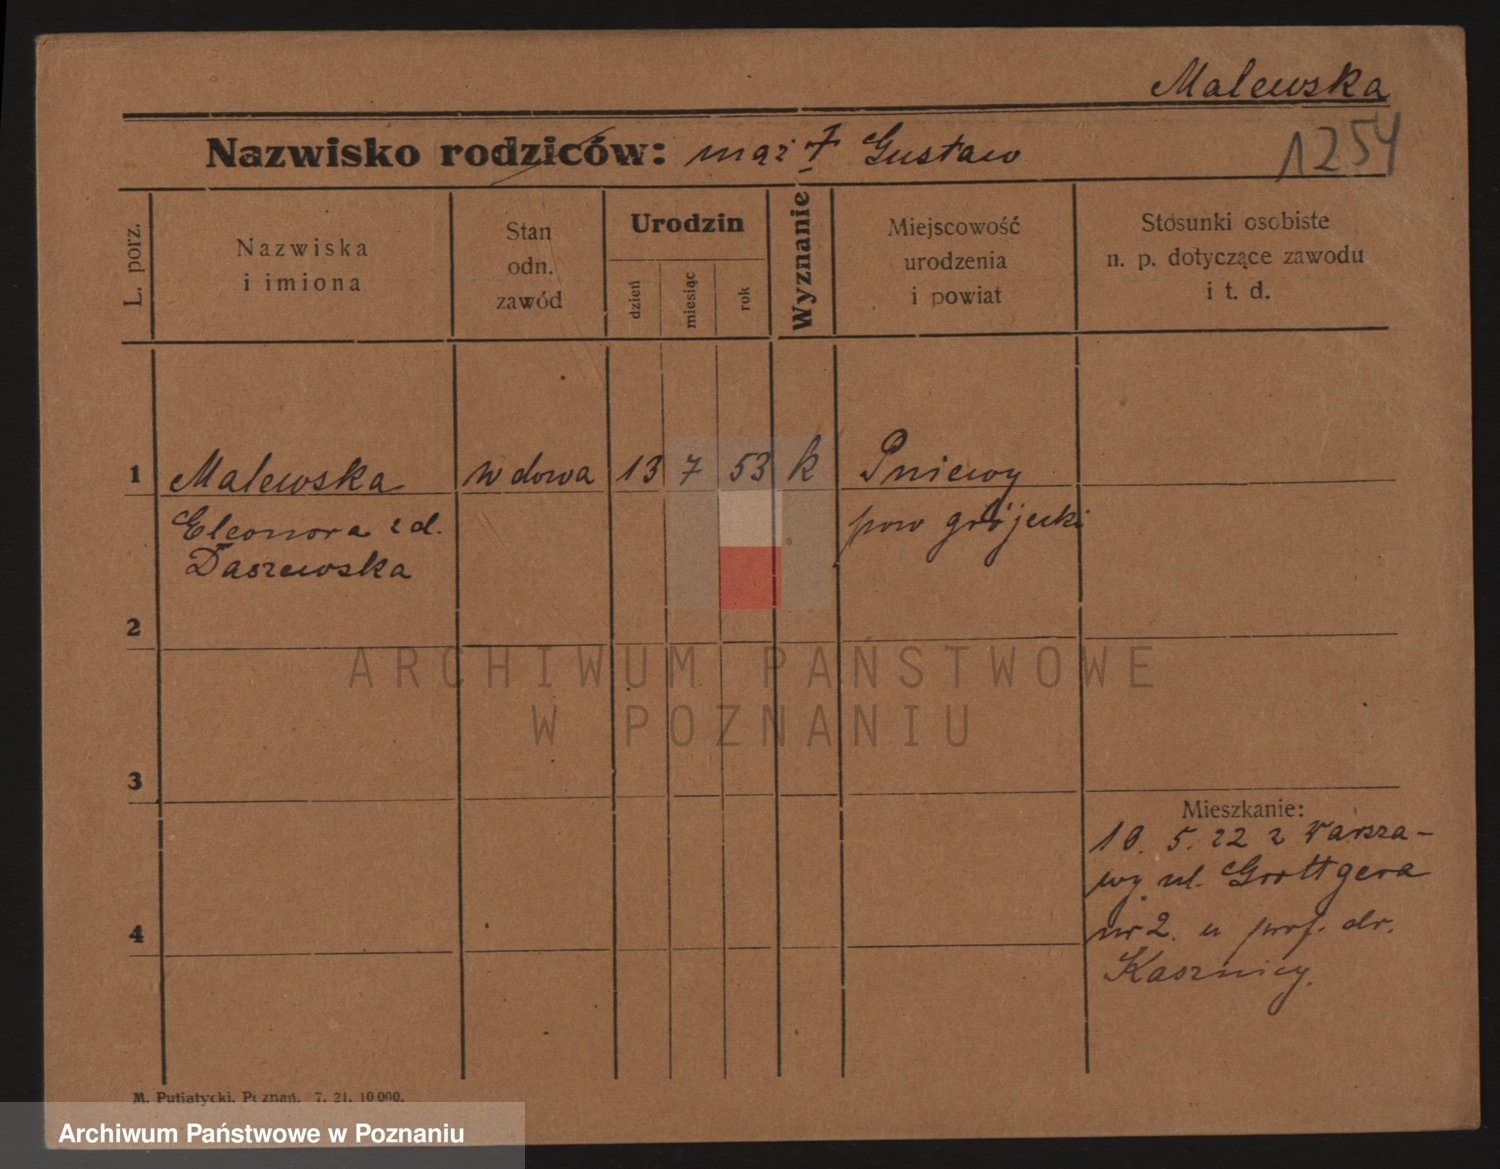 Malewska
Nazwisko rodziców: mąż † Gustaw
1254
L. porz.
Nazwiska
i imiona
Stan
odn.
zawód
Urodzin
dzień
miesiąc
rok
Wyznanie
Miejscowość
urodzenia
i powiat
Stosunki osobiste
n. p. dotyczące zawodu
i t. d.
1 Malewska wdowa 13 7 53 k Pniewy
Eleonora z d. pow grójecki
Daszewska
2
ARCHIWUM PAŃSTWOWE
W POZNANIU
3
Mieszkanie:
10. 5. 22 z Warsza-
wy ul. Grottgera
nr 2. u prof. dr.
4
Kasznicy.
M. Putiatycki, Poznań. 7. 21. 10 000.
Archiwum Państwowe w Poznaniu